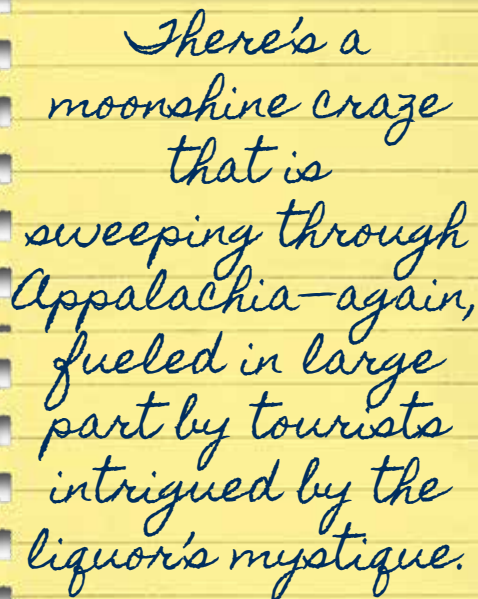 There's a
moonshine craze
that is
sweeping through
Appalachia—again,
fueled in large
part by tourists
intrigued by the
liquor's mystique.